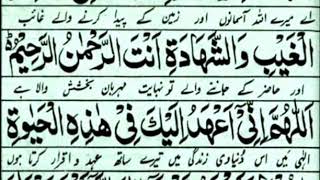 اے میرے اللہ آسمانوں اور زمین کے پیدا کرنے والے غائب
الْغَيْبِ وَالشَّهَادَةِ اَنْتَ الرَّحْمٰنُ الرَّحِيْمُ
اور حاضر کے جاننے والے تو نہایت مہربان بخشش والا ہے
اَللّٰهُمَّ اِنِّىْۤ اَعْهَدُ اِلَيْكَ فِىْ هٰذِهِ الْحَيٰوةِ
الٰہی میں اس دُنیاوی زندگی میں تیرے ساتھ عہد و اقرار کرتا ہوں